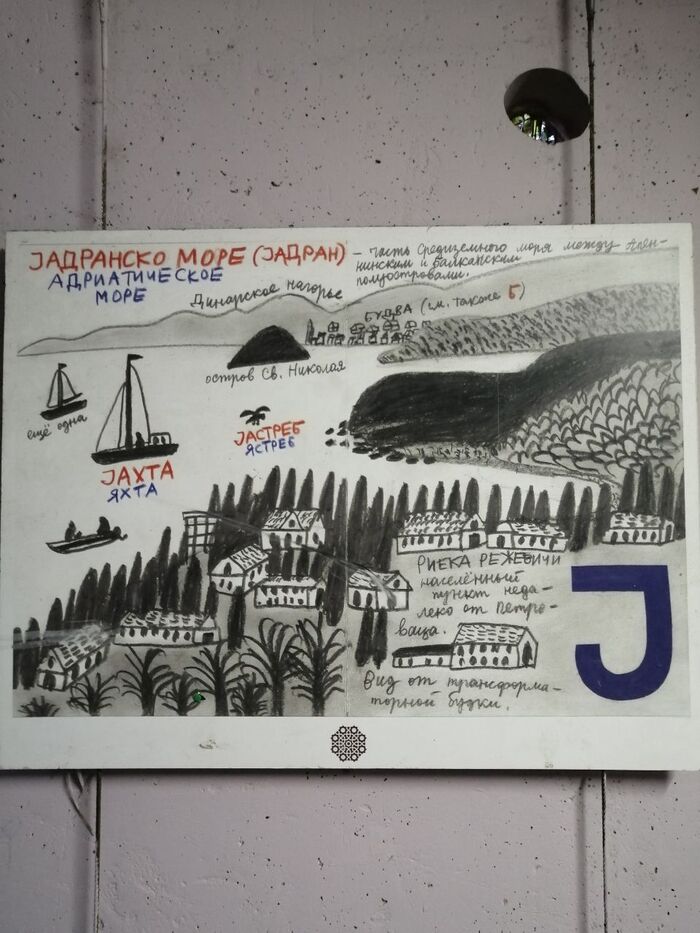 ЈАДРАНСКО МОРЕ (ЈАДРАН)
АДРИАТИЧЕСКОЕ
МОРЕ
– часть Средиземного моря между Апен-
нинским и Балканским
полуостровами.
Динарское нагорье
БУДВА (см. также Б)
остров Св. Николая
ещё одна
ЈАХТА
ЯХТА
ЈАСТРЕБ
ЯСТРЕБ
РИЕКА РЕЖЕВИЧИ
населённый
пункт неда-
леко от Петро-
ваца.
Вид от трансформа-
торной будки.
Ј